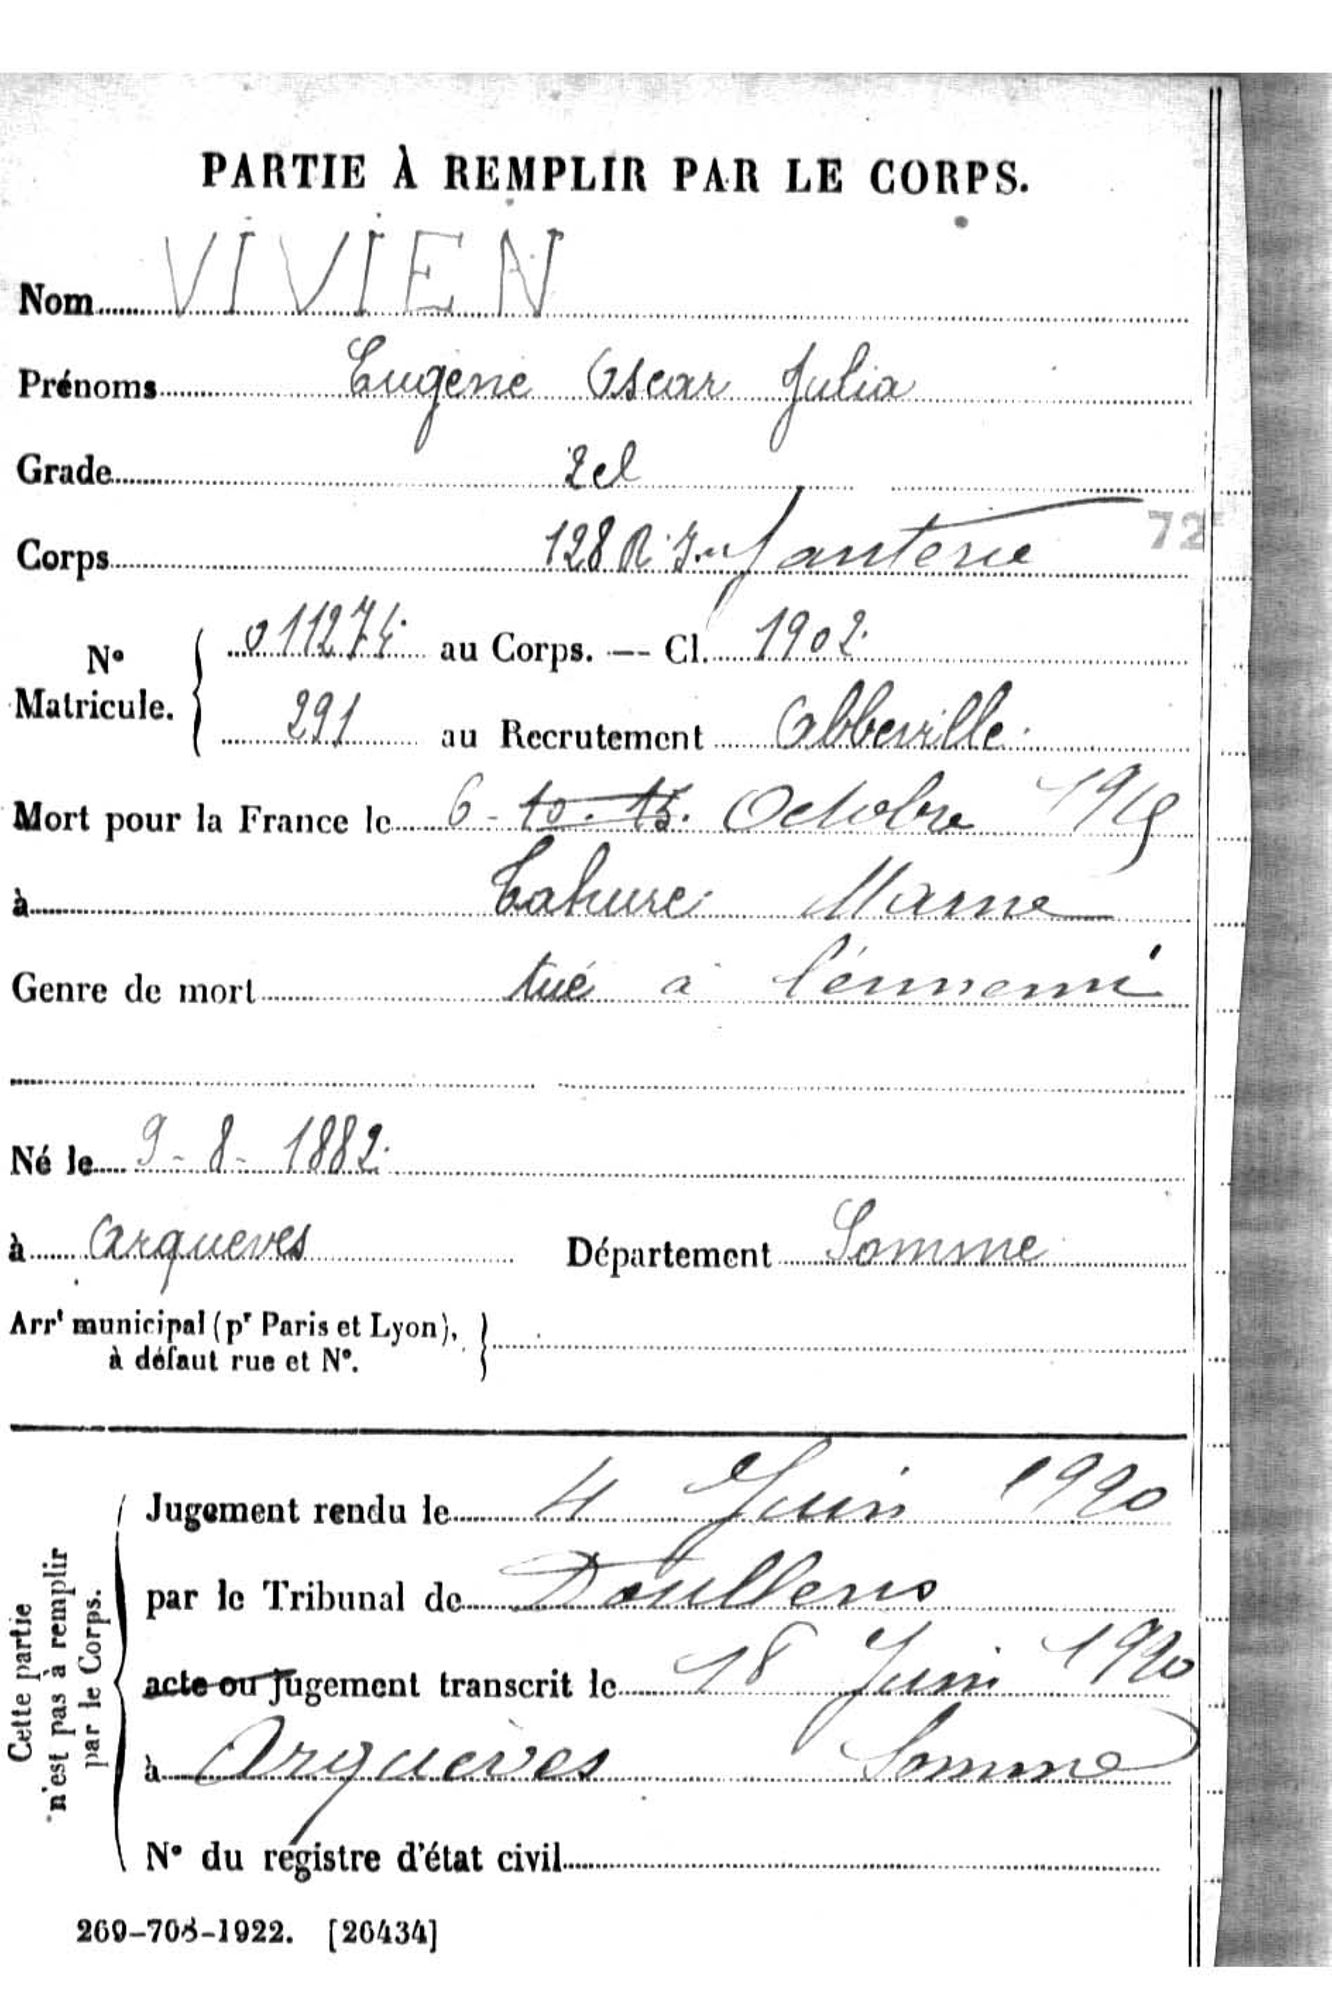 PARTIE À REMPLIR PAR LE CORPS.
Nom VIVIEN
Prénoms Eugène Oscar Julia
Grade 2cl
Corps 128 R. Infanterie
72
N° Matricule. { 011274 au Corps. — Cl. 1902
291 au Recrutement Abbeville
Mort pour la France le 6 - 10 - 15. Octobre 1915
à Tahure Marne
Genre de mort tué à l'énnemi
Né le 9 - 8 - 1882
à Arqueves Département Somme
Arrt municipal (pr Paris et Lyon), }
à défaut rue et N°.
Cette partie
n'est pas à remplir
par le Corps.
Jugement rendu le 4 Juin 1920
par le Tribunal de Doullens
acte ou jugement transcrit le 18 Juin 1920
à Arquèves Somme
N° du registre d'état civil
269-708-1922. [26434]